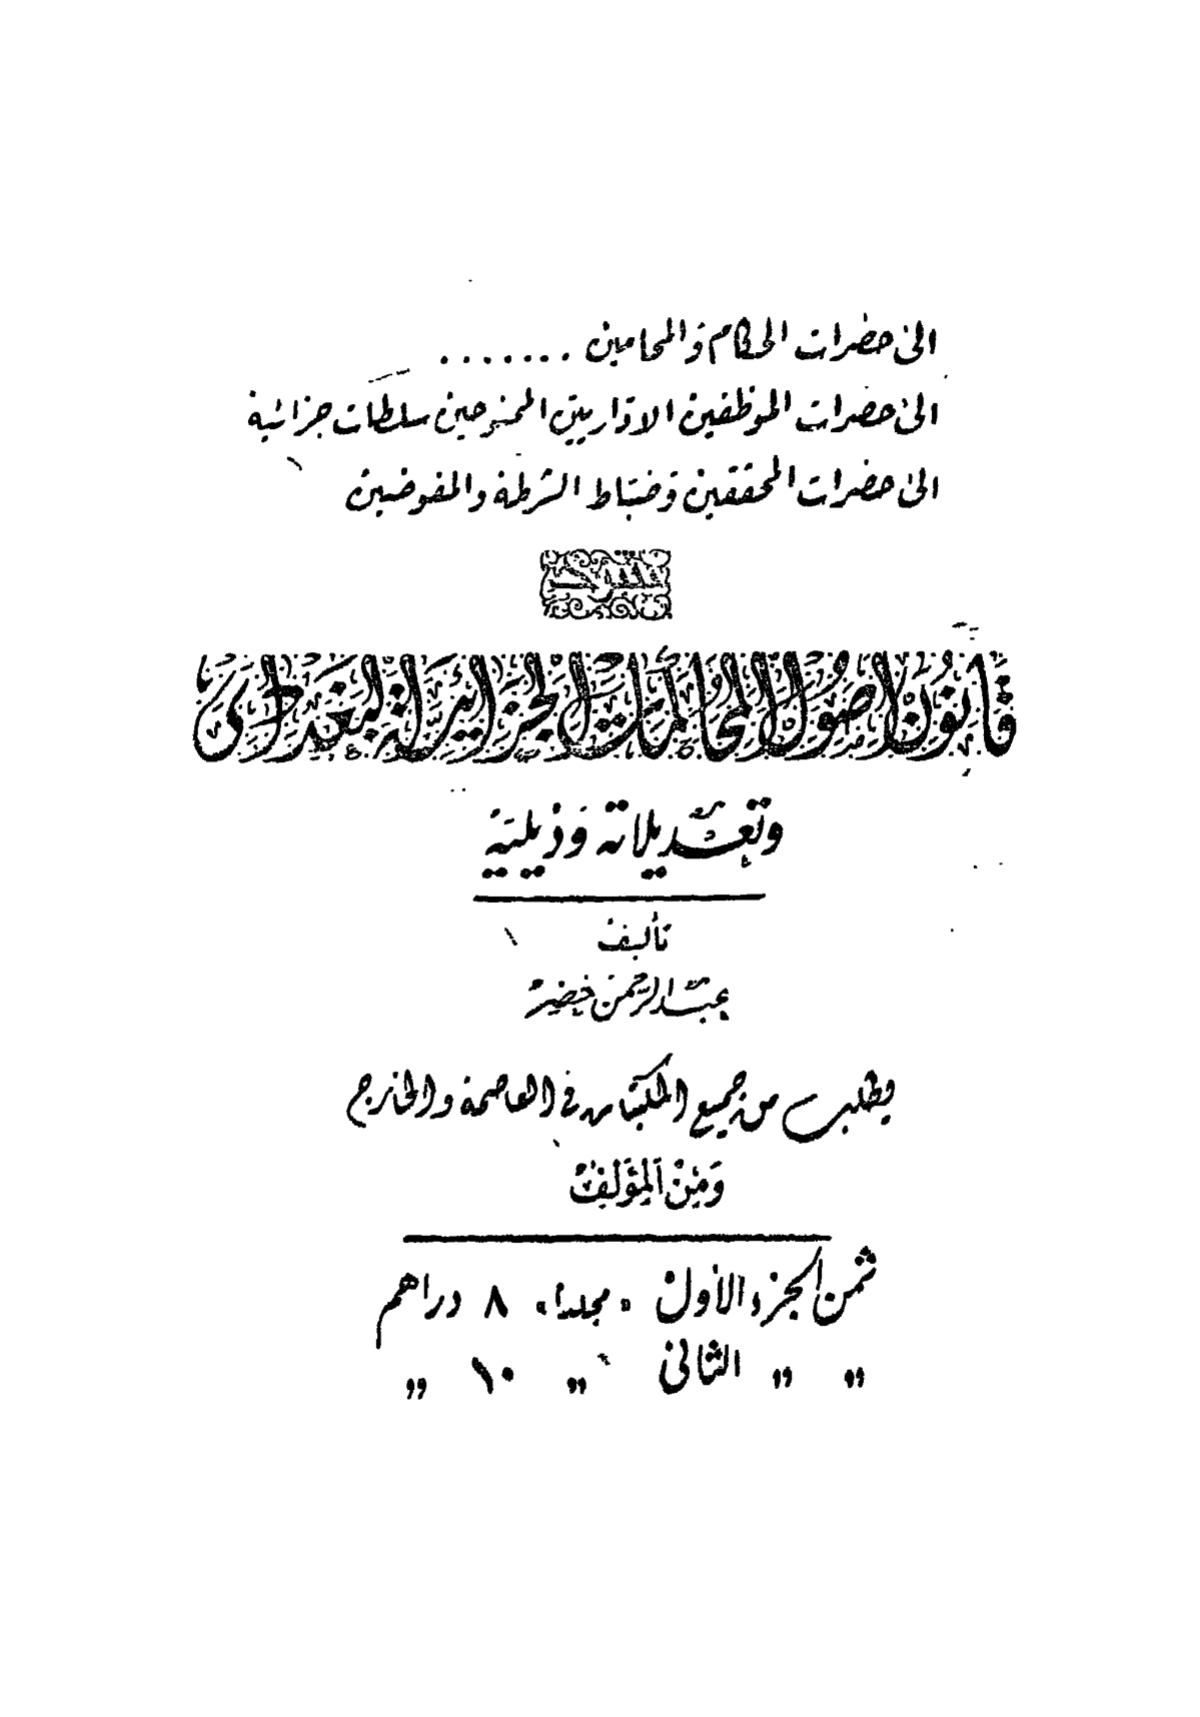 الى حضرات الحكام والمحامين .......
الى حضرات الموظفين الاداريين الممنوحين سلطات جزائية
الى حضرات المحققين وضباط الشرطة والمفوضين
شرح
قانون اصول المحاكمات الجزائية البغدادي
وتعديلاته وذيليه
تأليف
عبد الرحمن خضر
يطلب من جميع المكتبات في العاصمة والخارج
ومن المؤلف
ثمن الجزء الأول «مجلدا» ٨ دراهم
„ „ الثاني „ ١٠ „